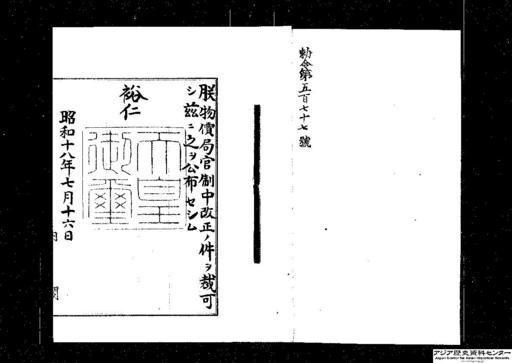 勅令第五百七十七號
朕物價局官制中改正ノ件ヲ裁可
シ茲ニ之ヲ公布セシム
裕仁
天皇御璽
昭和十八年七月十六日
内閣
アジア歴史資料センター
Japan Center for Asian Historical Records